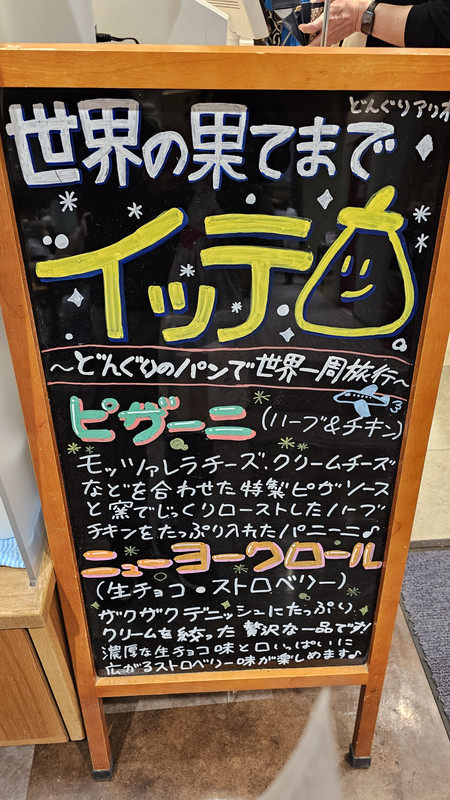 どんぐりアリオ
世界の果てまで
イッテ
〜どんぐりのパンで世界一周旅行〜
ピザーニ (ハーブ&チキン)
モッツァレラチーズ、クリームチーズ
などを合わせた特製ピザソース
と窯でじっくりローストしたハーブ
チキンをたっぷり入れたパニーニ♪
ニューヨークロール
(生チョコ・ストロベリー)
ザクザクデニッシュにたっぷり
クリームを絞った贅沢な一品です!
濃厚な生チョコ味と口いっぱいに
広がるストロベリー味が楽しめます♪